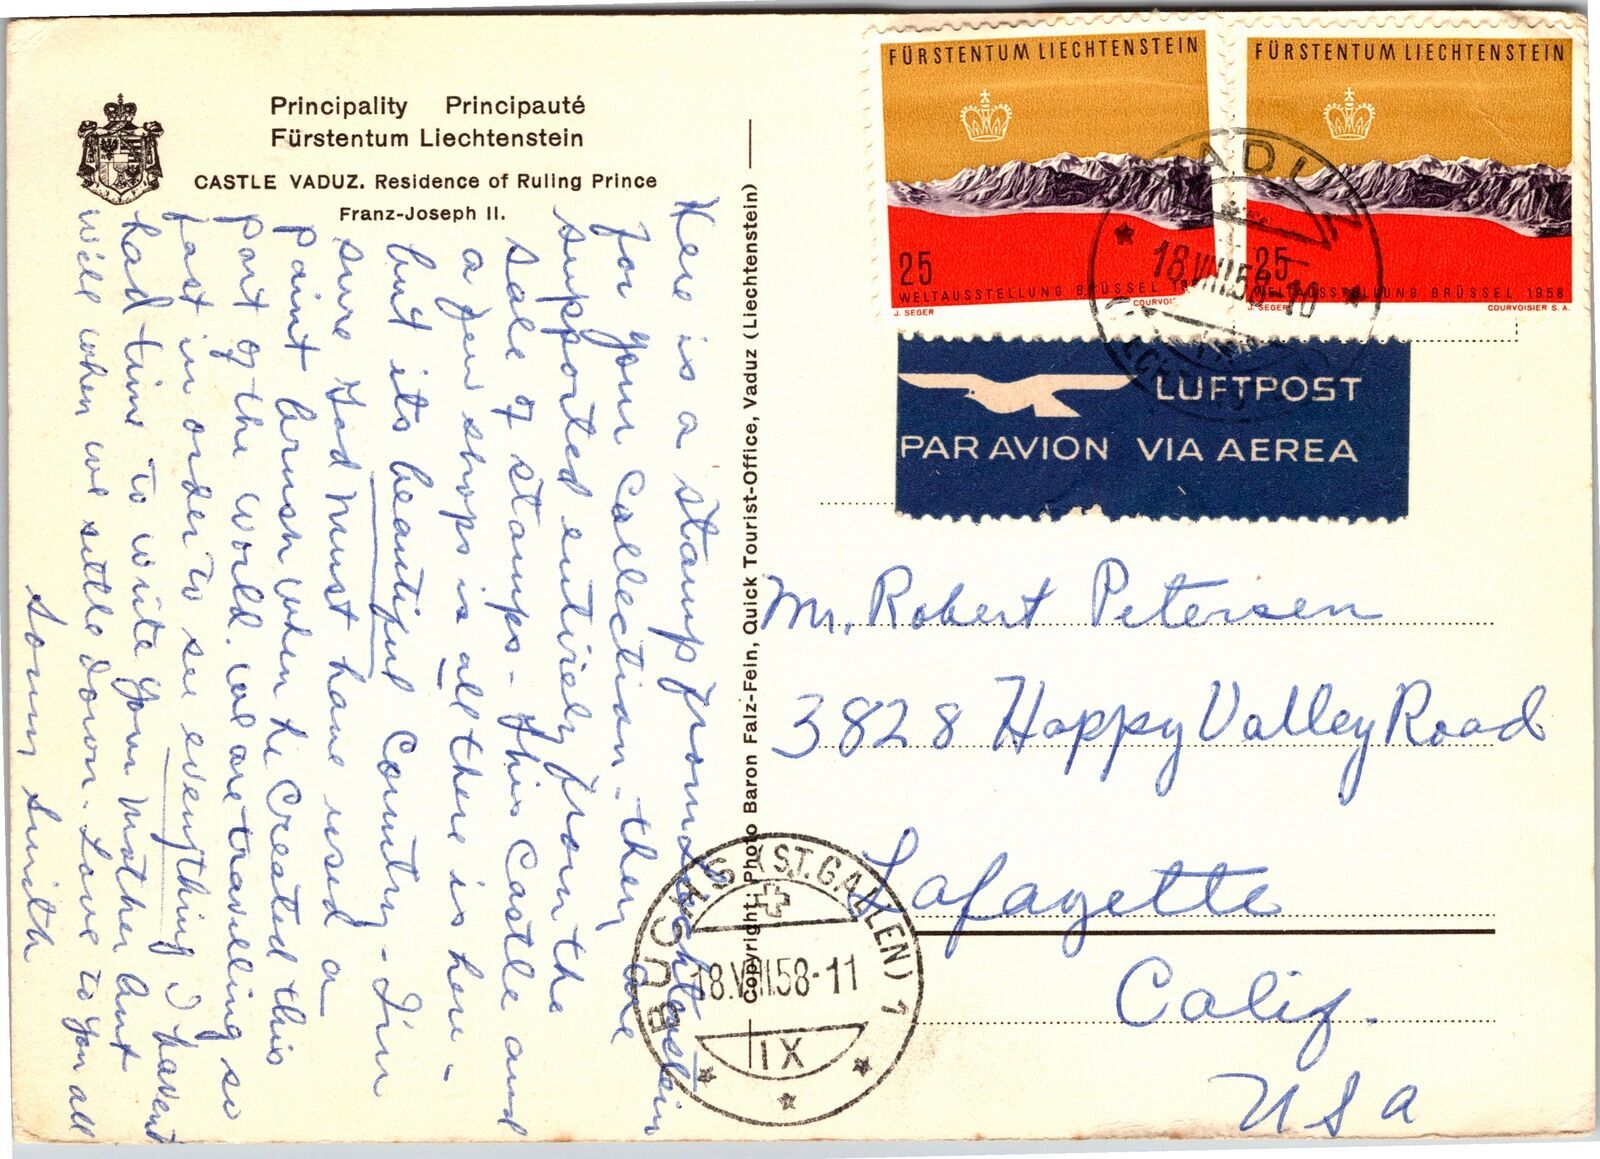 Principality Principauté
Fürstentum Liechtenstein
CASTLE VADUZ. Residence of Ruling Prince
Franz-Joseph II.
Here is a stamp from Liechtenstein
for your Collection. they are
supported entirely from the
sale of stamps - This Castle and
a few shops is all there is here -
but its beautiful Country - I'm
sure God must have used a
paint brush when he Created this
part of the world. we are travelling so
fast in order to see everything I havent
had time to write your mother but
will when we settle down. Love to you all
Sonny Smith
Copyright: Photo Baron Falz-Fein, Quick Tourist-Office, Vaduz (Liechtenstein)
FÜRSTENTUM LIECHTENSTEIN
25
WELTAUSSTELLUNG BRÜSSEL 19
J. SEGER COURVOISI
FÜRSTENTUM LIECHTENSTEIN
25
WELTAUSSTELLUNG BRÜSSEL 1958
J. SEGER COURVOISIER S.A.
VADUZ
18.VIII.58.-10
LUFTPOST
PAR AVION VIA AEREA
Mr. Robert Petersen
3828 Happy Valley Road
Lafayette
Calif.
USA
BUCHS (ST.GALLEN) 1
18.VIII.58-11
IX